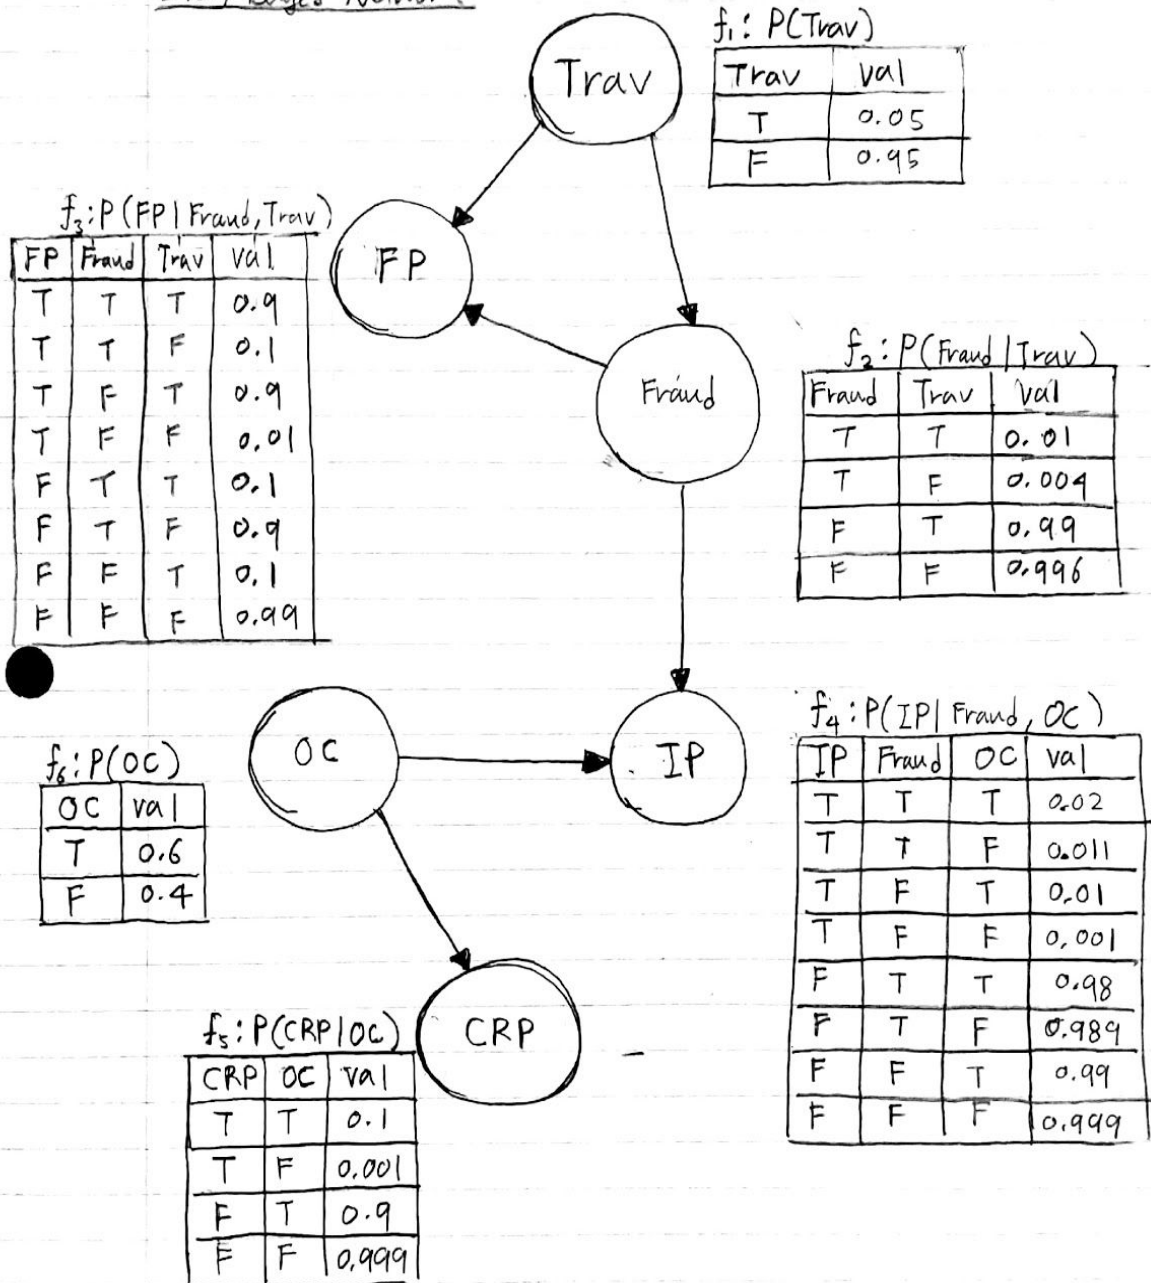 f₁: P(Trav)
Trav val
T 0.05
F 0.95
Trav
f₃: P(FP | Fraud, Trav)
FP Fraud Trav val
T T T 0.9
T T F 0.1
T F T 0.9
T F F 0.01
F T T 0.1
F T F 0.9
F F T 0.1
F F F 0.99
FP
Fraud
f₂: P(Fraud | Trav)
Fraud Trav val
T T 0.01
T F 0.004
F T 0.99
F F 0.996
f₆: P(OC)
OC val
T 0.6
F 0.4
OC
IP
f₄: P(IP | Fraud, OC)
IP Fraud OC val
T T T 0.02
T T F 0.011
T F T 0.01
T F F 0.001
F T T 0.98
F T F 0.989
F F T 0.99
F F F 0.999
f₅: P(CRP | OC)
CRP OC val
T T 0.1
T F 0.001
F T 0.9
F F 0.999
CRP